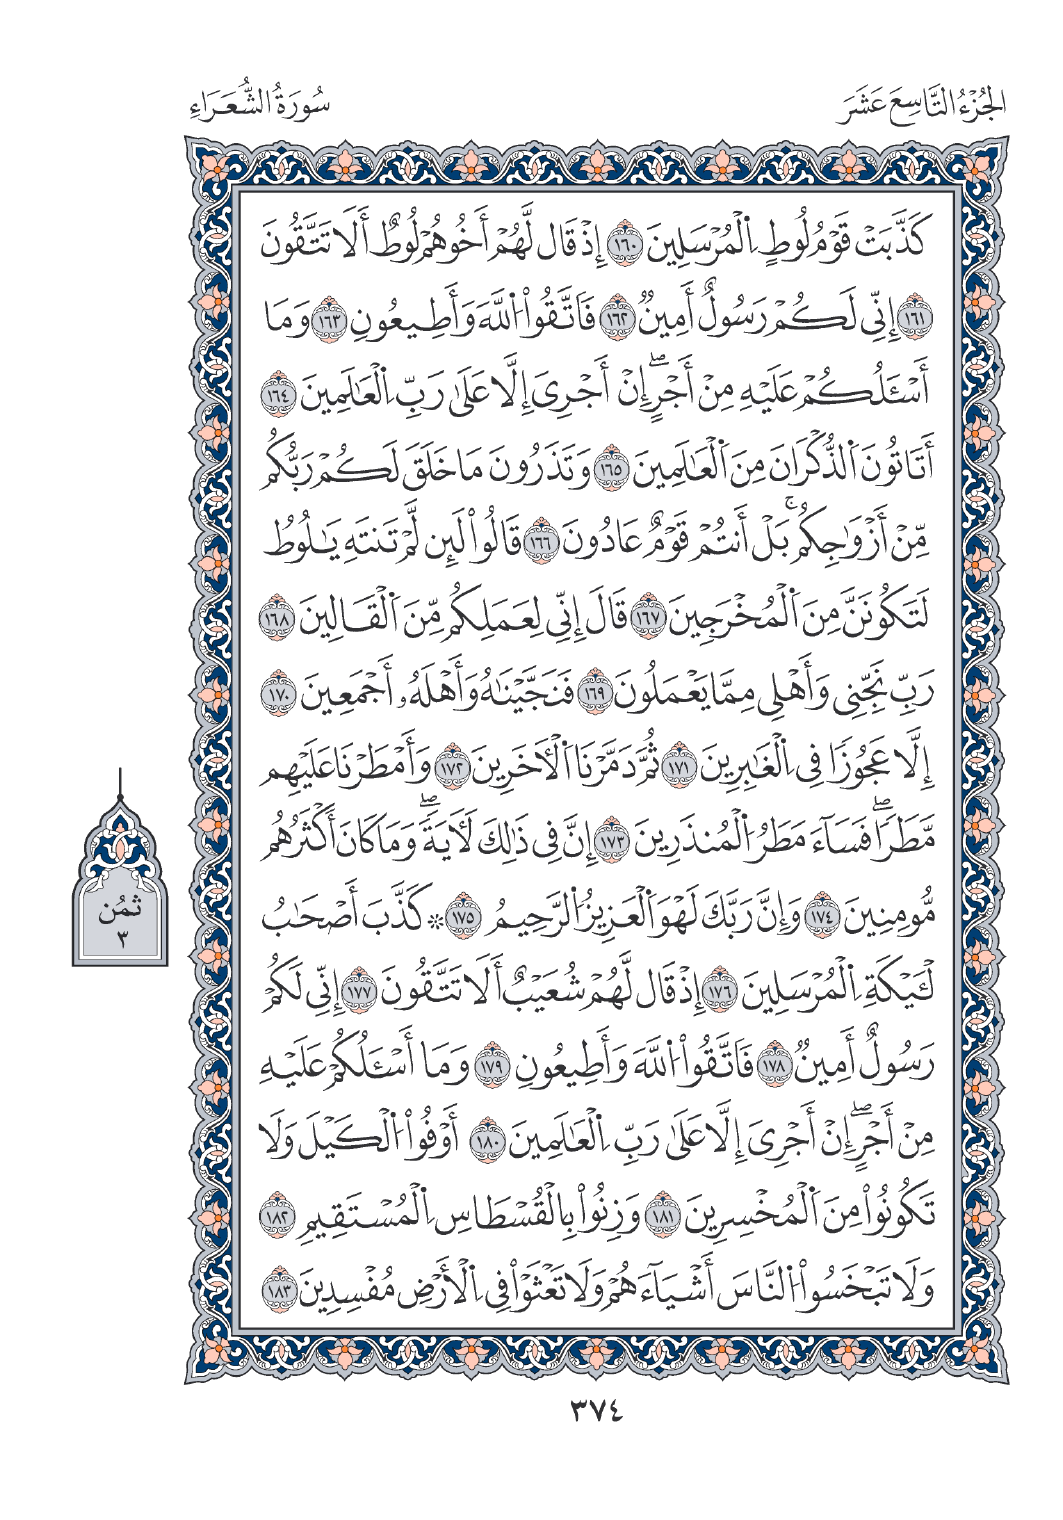 الجُزْءُ التَّاسِعَ عَشَرَ
سُورَةُ الشُّعَرَاءِ
كَذَّبَتْ قَوْمُ لُوطٍ اِ۬لْمُرْسَلِينَ ١٦٠ إِذْ قَالَ لَهُمْ أَخُوهُمْ لُوطٌ أَلَا تَتَّقُونَ
١٦١ إِنِّي لَكُمْ رَسُولٌ أَمِينٌ ١٦٢ فَاتَّقُواْ اُ۬للَّهَ وَأَطِيعُونِ ١٦٣ وَمَا
أَسْـَٔلُكُمْ عَلَيْهِ مِنْ أَجْرٍۖ إِنْ أَجْرِيَ إِلَّا عَلَىٰ رَبِّ اِ۬لْعَٰلَمِينَ ١٦٤
أَتَاتُونَ اَ۬لذُّكْرَانَ مِنَ اَ۬لْعَٰلَمِينَ ١٦٥ وَتَذَرُونَ مَا خَلَقَ لَكُمْ رَبُّكُم
مِّنْ أَزْوَٰجِكُمۚ بَلْ أَنتُمْ قَوْمٌ عَادُونَ ١٦٦ قَالُواْ لَئِن لَّمْ تَنتَهِ يَٰلُوطُ
لَتَكُونَنَّ مِنَ اَ۬لْمُخْرَجِينَ ١٦٧ قَالَ إِنِّي لِعَمَلِكُم مِّنَ اَ۬لْقَالِينَ ١٦٨
رَبِّ نَجِّنِي وَأَهْلِي مِمَّا يَعْمَلُونَ ١٦٩ فَنَجَّيْنَٰهُ وَأَهْلَهُۥ أَجْمَعِينَ ١٧٠
إِلَّا عَجُوزًا فِي اِ۬لْغَٰبِرِينَ ١٧١ ثُمَّ دَمَّرْنَا اَ۬لْأٓخَرِينَ ١٧٢ وَأَمْطَرْنَا عَلَيْهِم
مَّطَرًاۖ فَسَآءَ مَطَرُ اُ۬لْمُنذَرِينَ ١٧٣ إِنَّ فِي ذَٰلِكَ لَأٓيَةًۖ وَمَا كَانَ أَكْثَرُهُم
مُّومِنِينَ ١٧٤ وَإِنَّ رَبَّكَ لَهْوَ اَ۬لْعَزِيزُ اُ۬لرَّحِيمُ ١٧٥ ۞ كَذَّبَ أَصْحَٰبُ
لْـَٔيْكَةِ اِ۬لْمُرْسَلِينَ ١٧٦ إِذْ قَالَ لَهُمْ شُعَيْبٌ أَلَا تَتَّقُونَ ١٧٧ إِنِّي لَكُمْ
رَسُولٌ أَمِينٌ ١٧٨ فَاتَّقُواْ اُ۬للَّهَ وَأَطِيعُونِ ١٧٩ وَمَا أَسْـَٔلُكُمْ عَلَيْهِ
مِنْ أَجْرٍۖ إِنْ أَجْرِيَ إِلَّا عَلَىٰ رَبِّ اِ۬لْعَٰلَمِينَ ١٨٠ أَوْفُواْ اُ۬لْكَيْلَ وَلَا
تَكُونُواْ مِنَ اَ۬لْمُخْسِرِينَ ١٨١ وَزِنُواْ بِالْقُسْطَاسِ اِ۬لْمُسْتَقِيمِ ١٨٢
وَلَا تَبْخَسُواْ اُ۬لنَّاسَ أَشْيَآءَهُمْ وَلَا تَعْثَوْاْ فِي اِ۬لْأَرْضِ مُفْسِدِينَ ١٨٣
ثمُن
٣
٣٧٤